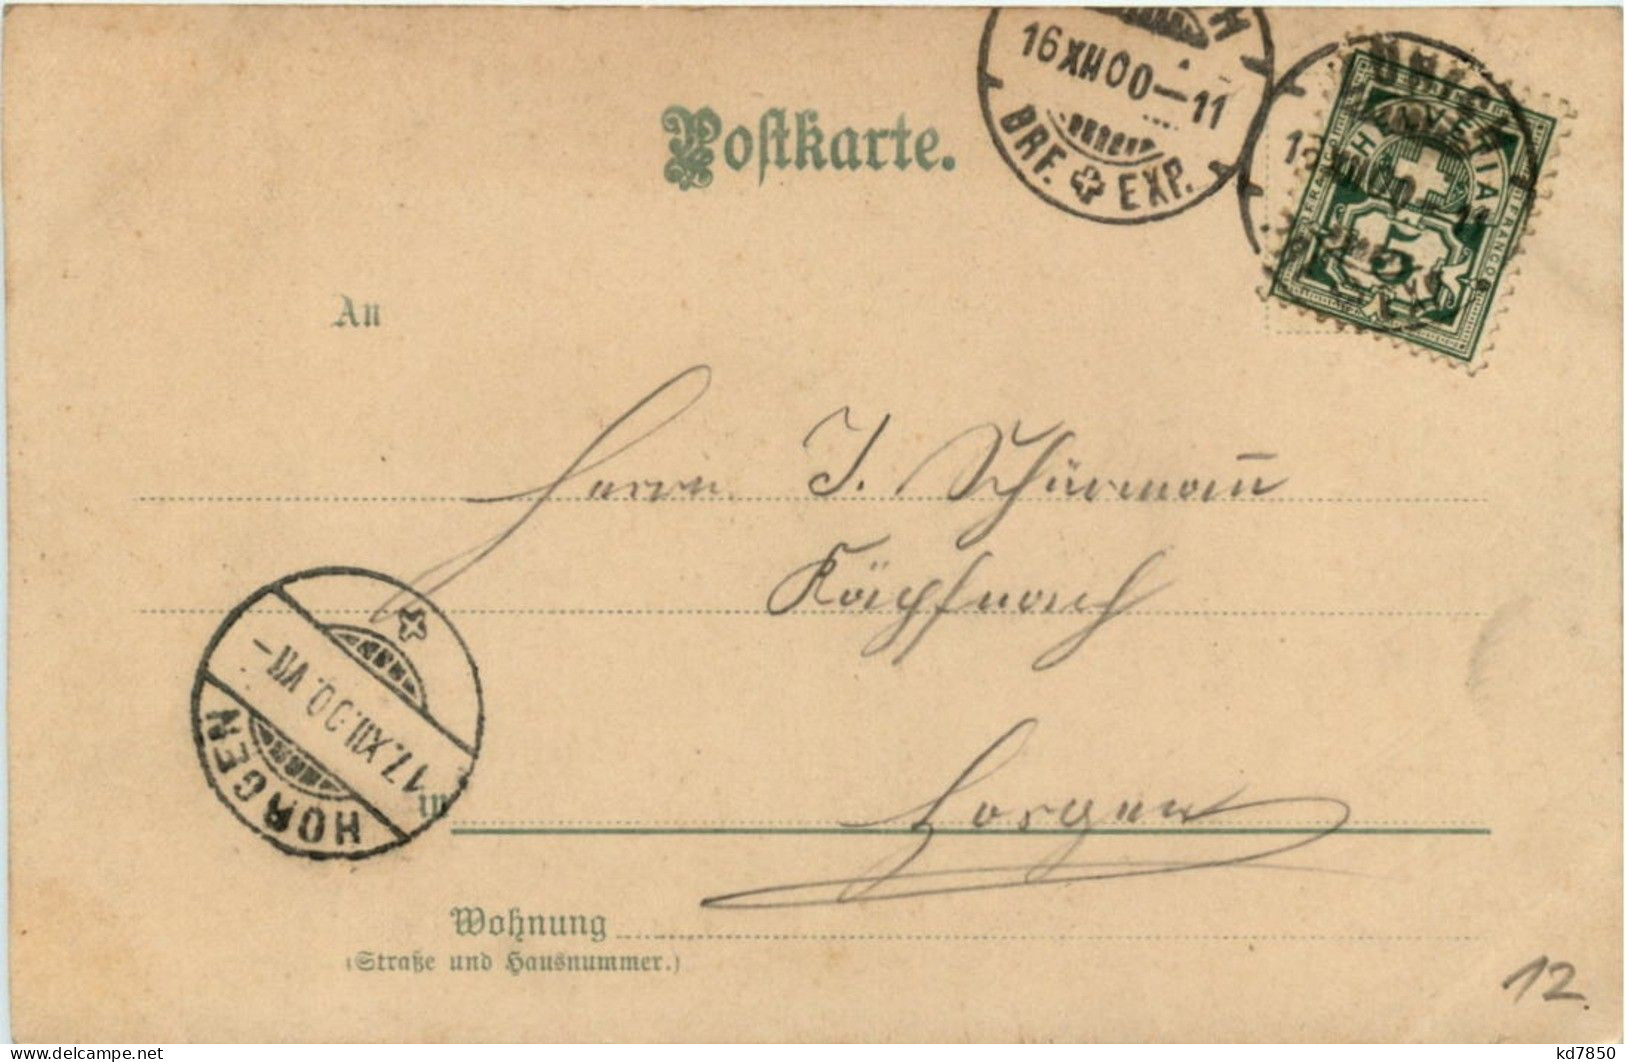 Postkarte.
16 XII 00 – 11
BRF. EXP.
HELVETIA
FRANCO
5
An
Herrn J. Schürmann
Käpfnach
HORGEN
17. XII. 00. VII –
in Horgen
Wohnung
(Straße und Hausnummer.)
12.
kd7850